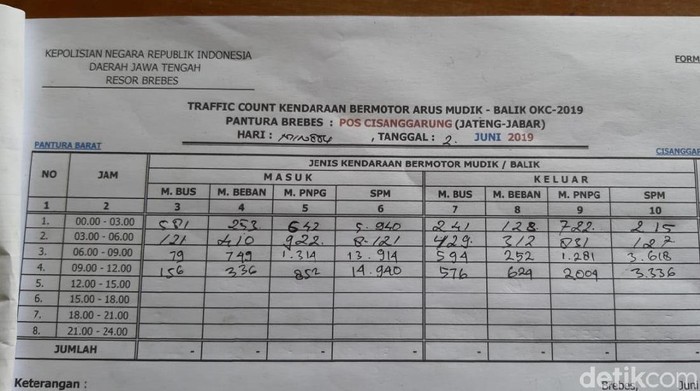 KEPOLISIAN NEGARA REPUBLIK INDONESIA
DAERAH JAWA TENGAH
RESOR BREBES
FORM
TRAFFIC COUNT KENDARAAN BERMOTOR ARUS MUDIK - BALIK OKC-2019
PANTURA BREBES : POS CISANGGARUNG (JATENG-JABAR)
HARI : , TANGGAL : 2. JUNI 2019
PANTURA BARAT CISANGGAR
NO JAM JENIS KENDARAAN BERMOTOR MUDIK / BALIK
MASUK KELUAR
M. BUS M. BEBAN M. PNPG SPM M. BUS M. BEBAN M. PNPG SPM
1 2 3 4 5 6 7 8 9 10
1. 00.00 - 03.00 581 253 642 5.940 241 128 722 215
2. 03.00 - 06.00 121 410 922 8.121 429 312 831 127
3. 06.00 - 09.00 79 749 1.314 13.914 594 252 1.281 3.618
4. 09.00 - 12.00 156 336 852 14.940 576 624 2004 3.336
5. 12.00 - 15.00
6. 15.00 - 18.00
7. 18.00 - 21.00
8. 21.00 - 24.00
JUMLAH - - - - - - - -
Keterangan : Brebes, Juni
detikcom